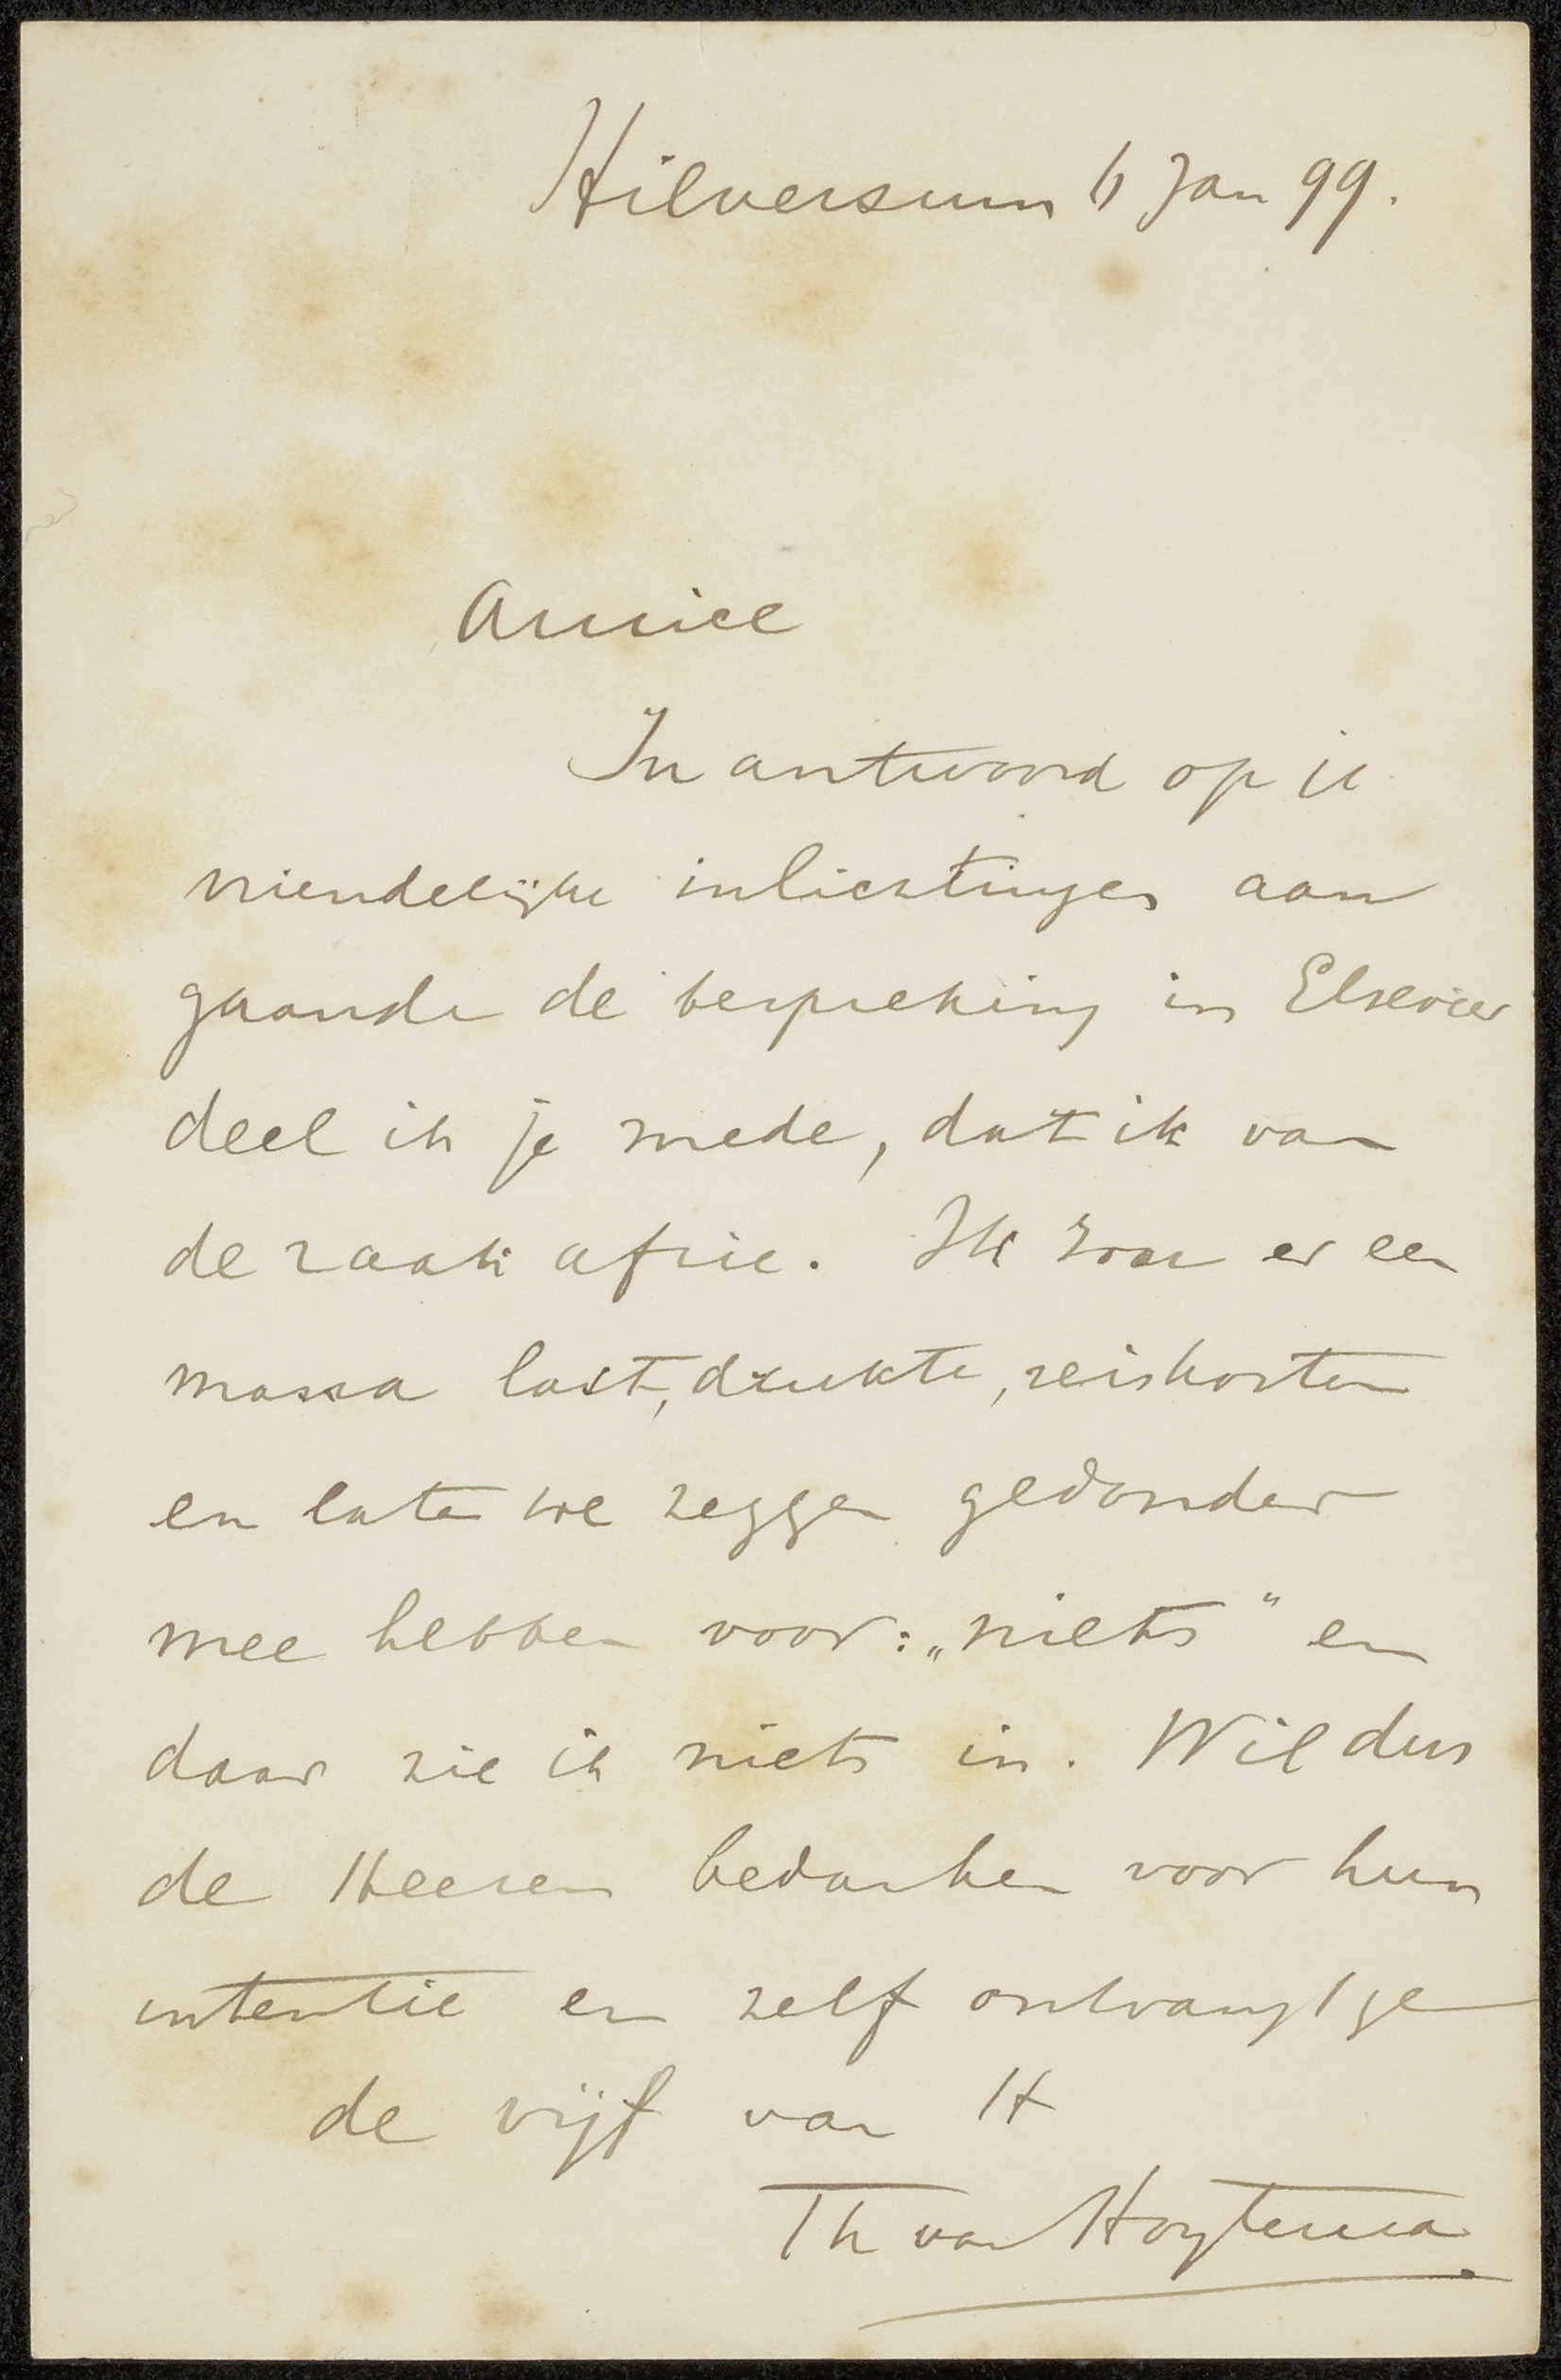 Hilversum 6 Jan 99.
Amice
In antwoord op je
vriendelijke inlichtingen aan
gaande de bespreking in Elsevier
deel ik je mede, dat ik van
de zaak afzie. Ik zou er een
massa last, drukte, reiskosten
en laten we zeggen gedonder
mee hebben voor: „niets" en
daar zie ik niets in. Wil dus
de Heeren bedanken voor hun
intentie en zelf ontvangt ge
de vijf van H
Th van Hoytema.